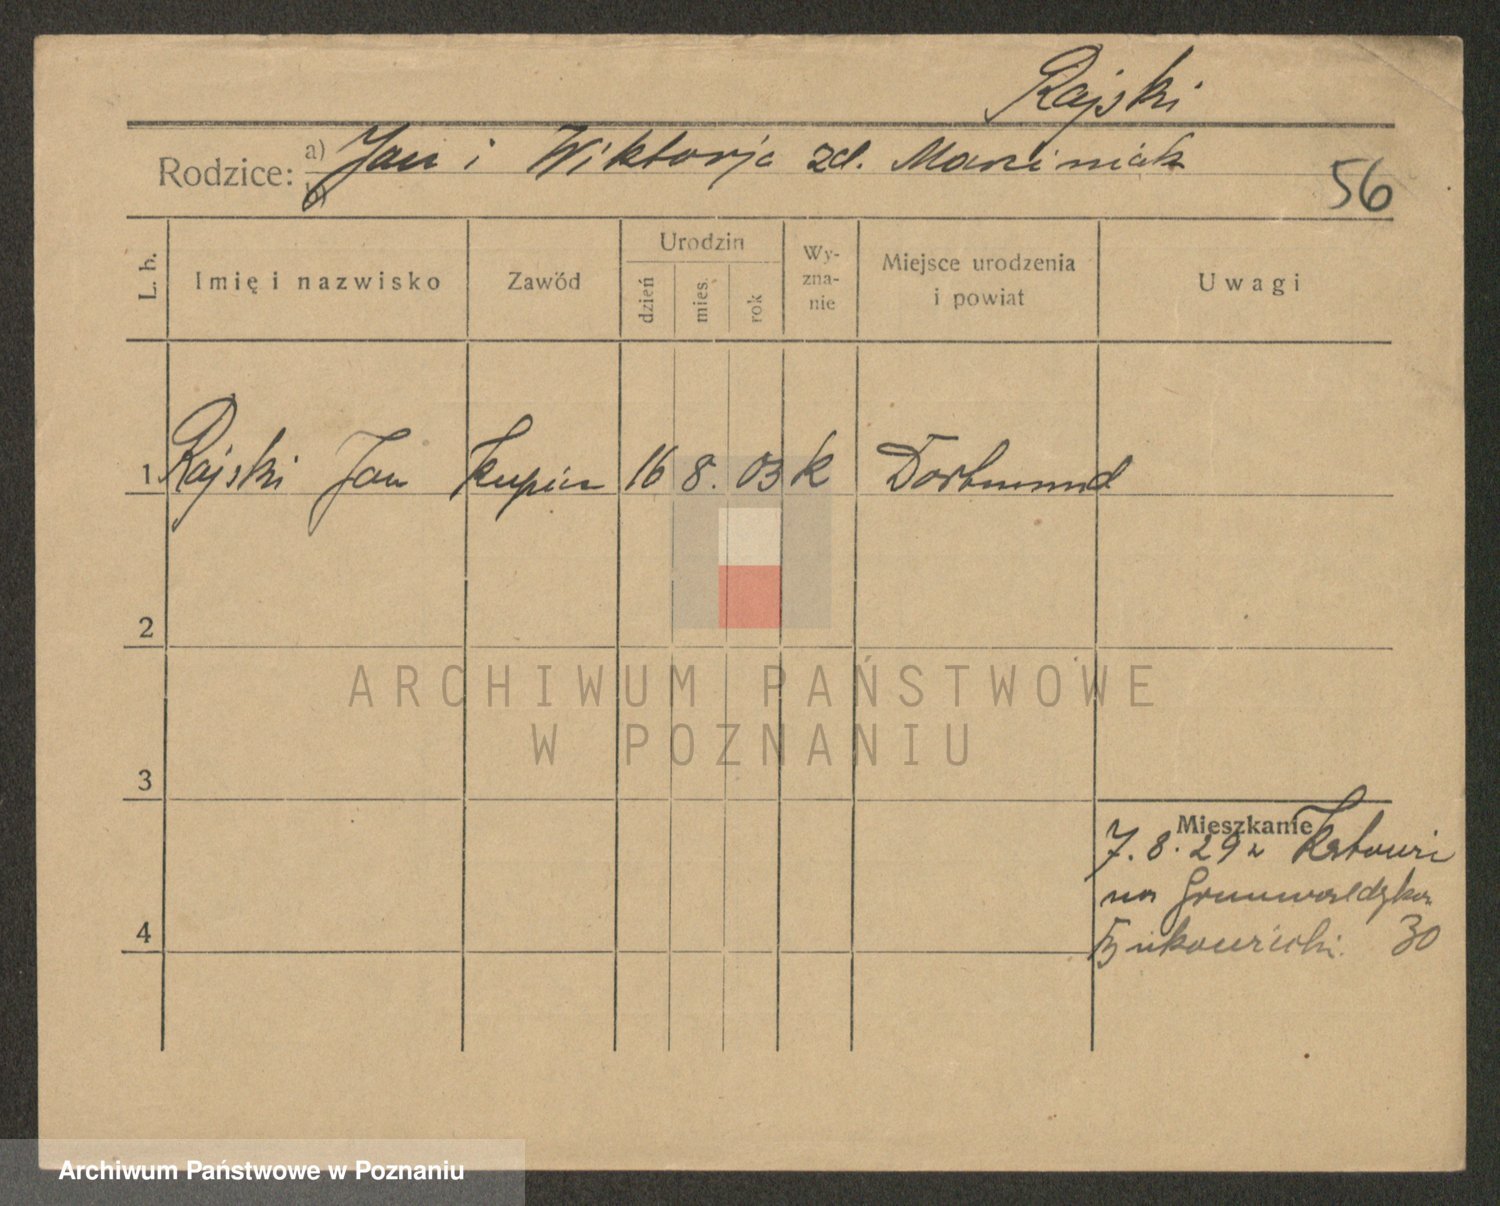 Rajski
Rodzice: a) Jan i Wiktorja zd. Marciniak
b)
56
L. b.
Imię i nazwisko
Zawód
Urodzin
dzień
mies.
rok
Wy-
zna-
nie
Miejsce urodzenia
i powiat
Uwagi
1 Rajski Jan kupiec 16 8. 03 k Dortmund
2
ARCHIWUM PAŃSTWOWE
W POZNANIU
3
Mieszkanie
7. 8. 29 z Katowic
na Grunwaldzka
30
4
Archiwum Państwowe w Poznaniu